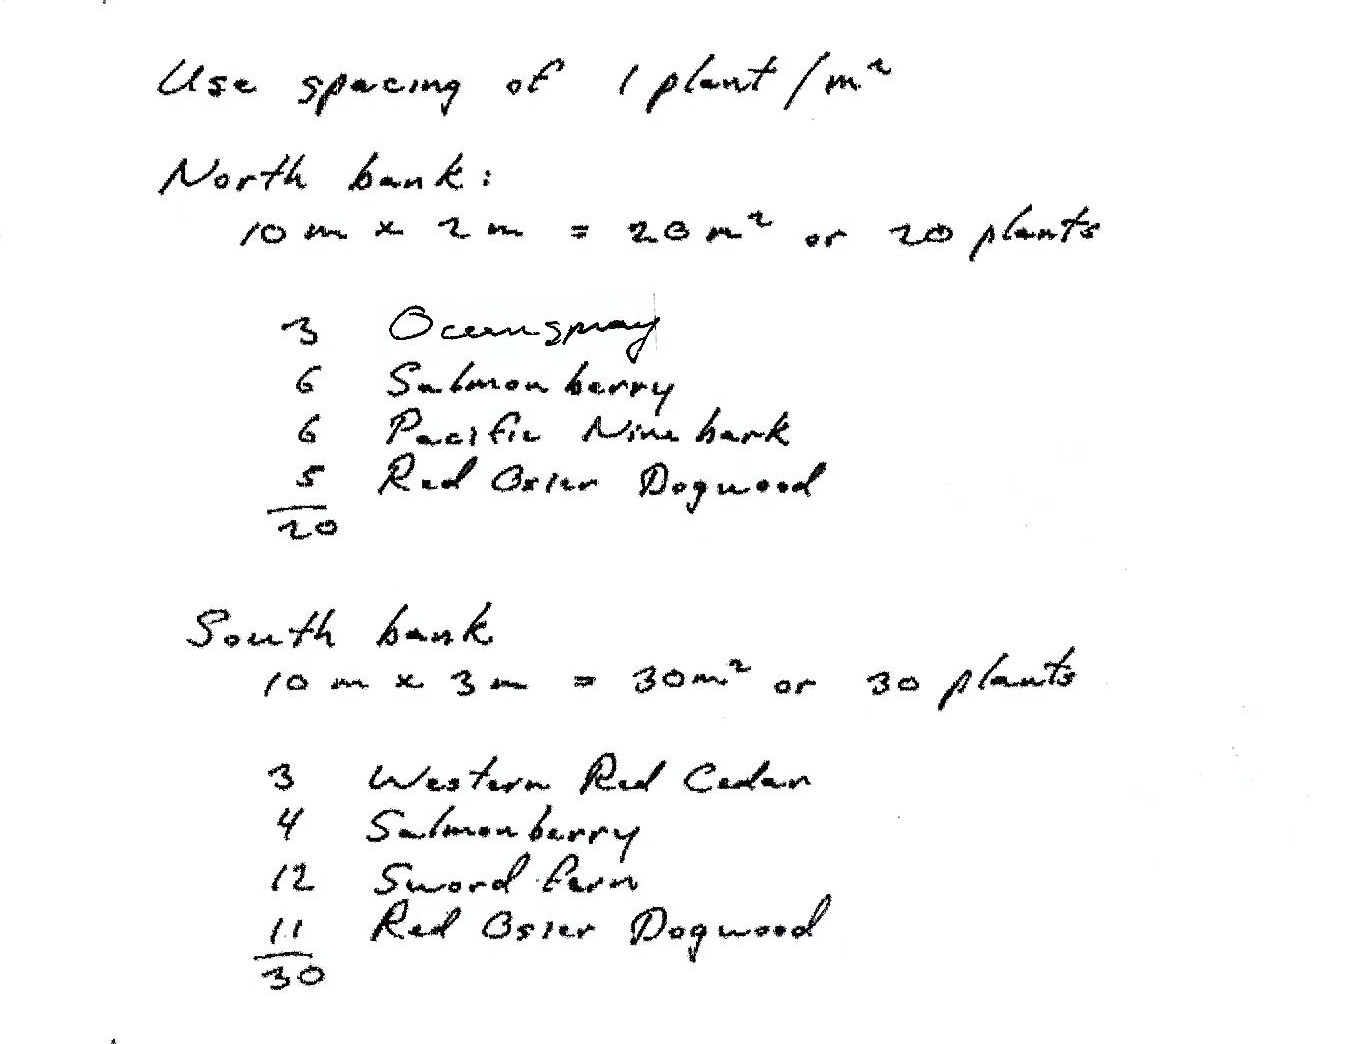 Use spacing of 1 plant/m²
North bank:
10 m x 2 m = 20 m² or 20 plants
3 Oceanspray
6 Salmonberry
6 Pacific Ninebark
5 Red Osier Dogwood
20
South bank
10 m x 3 m = 30 m² or 30 plants
3 Western Red Cedar
4 Salmonberry
12 Sword fern
11 Red Osier Dogwood
30